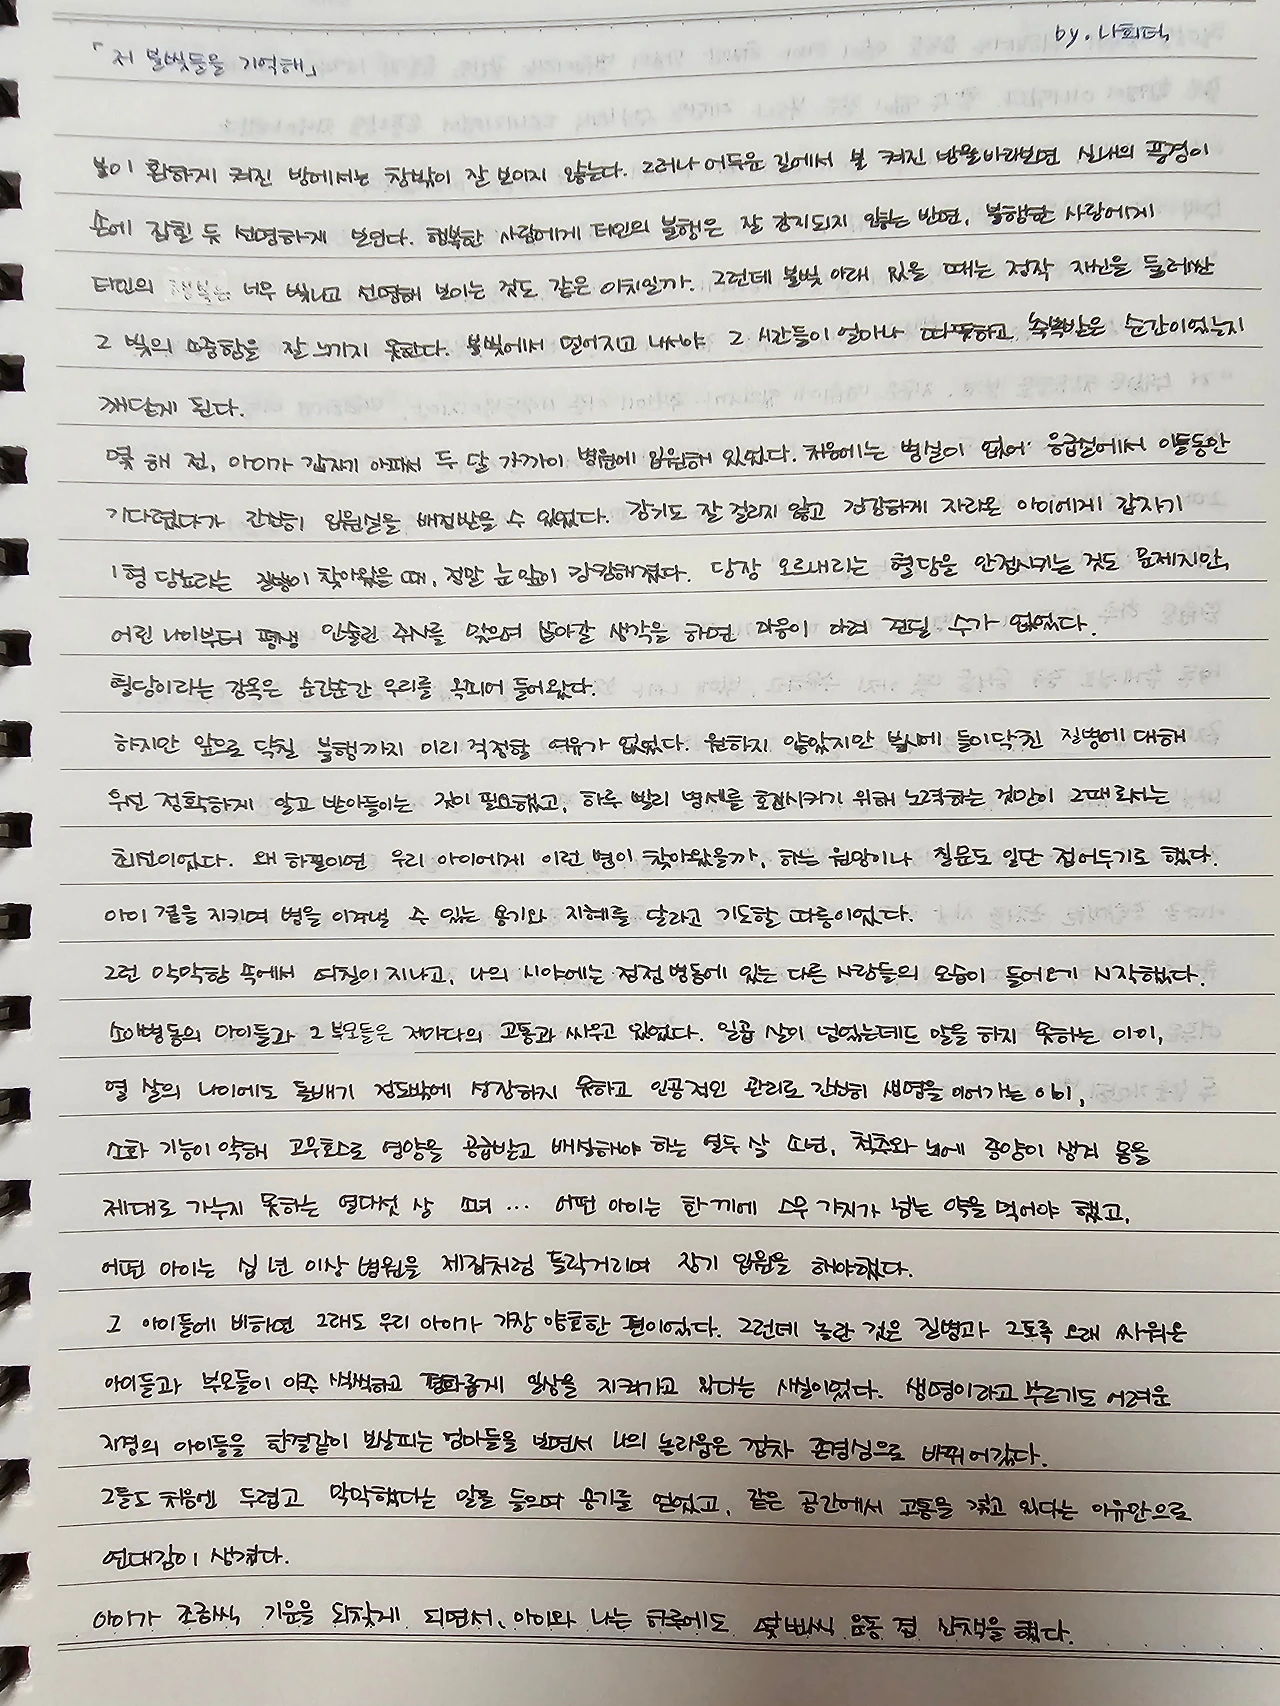 「저 불빛들을 기억해」 by. 나희덕
불이 환하게 켜진 방에서는 창밖이 잘 보이지 않는다. 그러나 어두운 길에서 불 켜진 방을 바라보면 실내의 풍경이
손에 잡힐 듯 선명하게 보인다. 행복한 사람에게 타인의 불행은 잘 감지되지 않는 반면, 불행한 사람에게
타인의 행복은 너무 빛나고 선명해 보이는 것도 같은 이치일까. 그런데 불빛 아래 있을 때는 정작 자신을 둘러싼
그 빛의 소중함을 잘 느끼지 못한다. 불빛에서 멀어지고 나서야 그 시간들이 얼마나 따뜻하고 축복받은 순간이었는지
깨닫게 된다.
몇 해 전, 아이가 갑자기 아파서 두 달 가까이 병원에 입원해 있었다. 처음에는 병실이 없어 응급실에서 이틀동안
기다렸다가 간신히 입원실을 배정받을 수 있었다. 감기도 잘 걸리지 않고 건강하게 자라온 아이에게 갑자기
1형 당뇨라는 질병이 찾아왔을 때, 정말 눈앞이 캄캄해졌다. 당장 오르내리는 혈당을 안정시키는 것도 문제지만,
어린 나이부터 평생 인슐린 주사를 맞으며 살아갈 생각을 하면 마음이 아려 견딜 수가 없었다.
혈당이라는 감옥은 순간순간 우리를 옥죄어 들어왔다.
하지만 앞으로 닥칠 불행까지 미리 걱정할 여유가 없었다. 원하지 않았지만 불시에 들이닥친 질병에 대해
우선 정확하게 알고 받아들이는 것이 필요했고, 하루 빨리 병세를 호전시키기 위해 노력하는 것만이 그때로서는
최선이었다. 왜 하필이면 우리 아이에게 이런 병이 찾아왔을까, 하는 원망이나 질문도 일단 접어두기로 했다.
아이 곁을 지키며 병을 이겨낼 수 있는 용기와 지혜를 달라고 기도할 따름이었다.
그런 막막함 속에서 며칠이 지나고, 나의 시야에는 점점 병동에 있는 다른 사람들의 모습이 들어오기 시작했다.
소아병동의 아이들과 그 부모들은 저마다의 고통과 싸우고 있었다. 일곱 살이 넘었는데도 말을 하지 못하는 아이,
열 살의 나이에도 돌배기 정도밖에 성장하지 못하고 인공적인 관리로 간신히 생명을 이어가는 아이,
소화 기능이 약해 고무호스로 영양을 공급받고 배설해야 하는 열두 살 소년, 척추와 뇌에 종양이 생겨 몸을
제대로 가누지 못하는 열다섯 살 소녀 ... 어떤 아이는 한 끼에 스무 가지가 넘는 약을 먹어야 했고,
어떤 아이는 십 년 이상 병원을 제집처럼 들락거리며 장기 입원을 해야했다.
그 아이들에 비하면 그래도 우리 아이가 가장 양호한 편이었다. 그런데 놀란 것은 질병과 그토록 오래 싸워온
아이들과 부모들이 아주 씩씩하고 평화롭게 일상을 지켜가고 있다는 사실이었다. 생명이라고 부르기도 어려운
지경의 아이들을 한결같이 보살피는 엄마들을 보면서 나의 놀라움은 점차 존경심으로 바뀌어갔다.
그들도 처음엔 두렵고 막막했다는 말을 들으며 용기를 얻었고, 같은 공간에서 고통을 겪고 있다는 이유만으로
연대감이 생겼다.
아이가 조금씩 기운을 되찾게 되면서, 아이와 나는 하루에도 몇 번씩 운동 겸 산책을 했다.